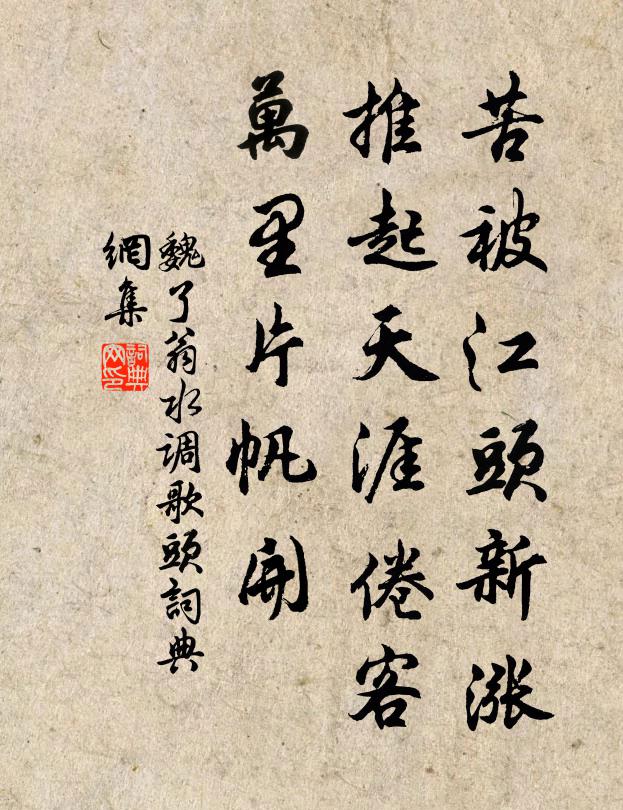 苦被江頭新漲
推起天涯倦客
萬里片帆開
魏了翁水调歌頭詞典
網集
詞典网印